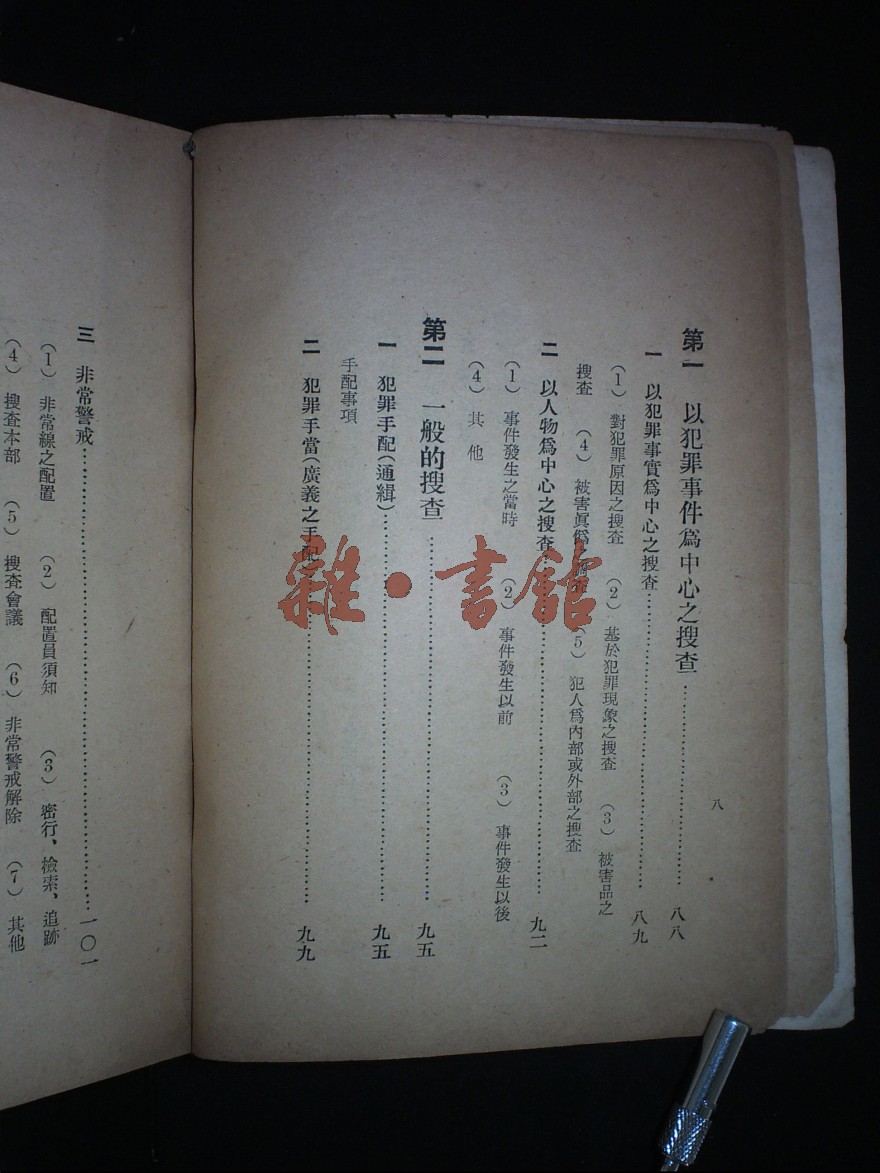 八
第一 以犯罪事件爲中心之搜查……八八
一 以犯罪事實爲中心之搜查……八九
（1）對犯罪原因之搜查 （2）基於犯罪現象之搜查 （3）被害品之
搜查 （4）被害眞僞 （5）犯人爲內部或外部之搜查
二 以人物爲中心之搜查……九二
（1）事件發生之當時 （2）事件發生以前 （3）事件發生以後
（4）其他
第二 一般的搜查……九五
一 犯罪手配（通緝）……九五
手配事項
二 犯罪手當（廣義之手配……九九
三 非常警戒……一〇一
（1）非常線之配置 （2）配置員須知 （3）密行、檢索、追跡
（4）搜查本部 （5）搜查會議 （6）非常警戒解除 （7）其他
雜·書館